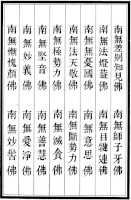 南無差別知見佛
南無師子牙佛
南無法燈蓋佛
南無目犍連佛
南無憂國佛
南無意思佛
南無法天敬佛
南無斷勢力佛
南無極勢力佛
南無滅貪佛
南無堅音佛
南無善慧佛
南無妙義佛
南無愛淨佛
南無慚愧顏佛
南無妙髻佛